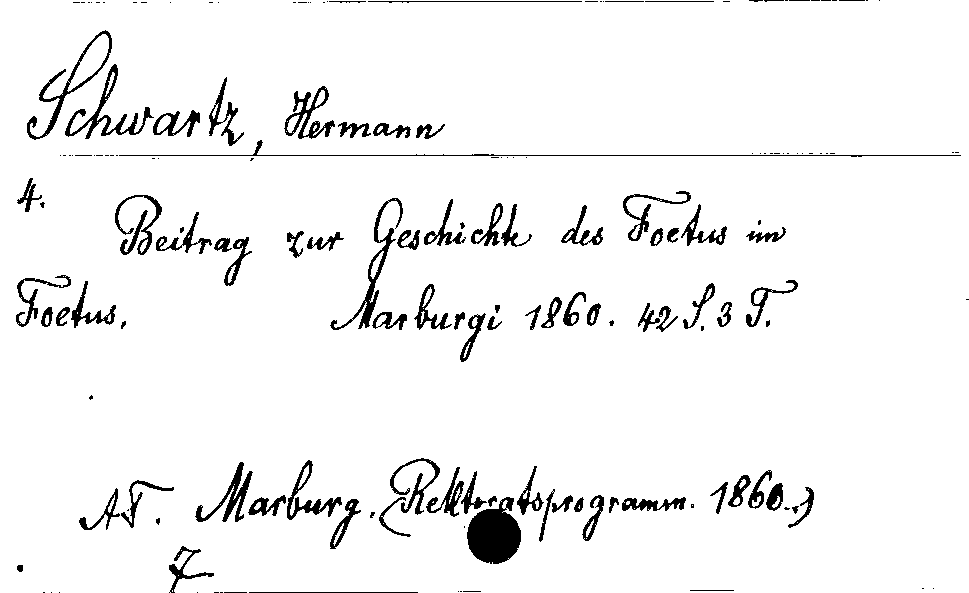 Schwartz, Hermann
4.
Beitrag zur Geschichte des Foetus im
Foetus. Marburgi 1860. 42 S. 3 T.
AT. Marburg. (Rektoratsprogramm. 1860.)
7